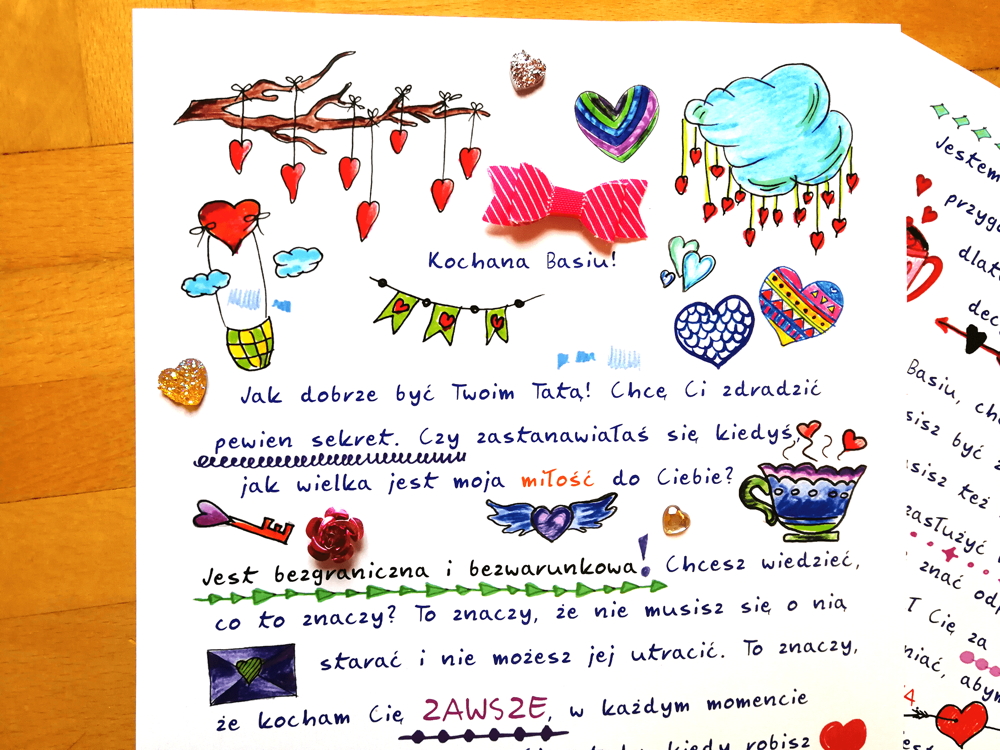 Kochana Basiu!
Jak dobrze być Twoim Tatą! Chcę Ci zdradzić
pewien sekret. Czy zastanawiałaś się kiedyś,
jak wielka jest moja miłość do Ciebie?
Jest bezgraniczna i bezwarunkowa! Chcesz wiedzieć,
co to znaczy? To znaczy, że nie musisz się o nią
starać i nie możesz jej utracić. To znaczy,
że kocham Cię ZAWSZE, w każdym momencie
kiedy robisz
Jestem
Basiu,
być
też
zasłużyć
znać
Cię za